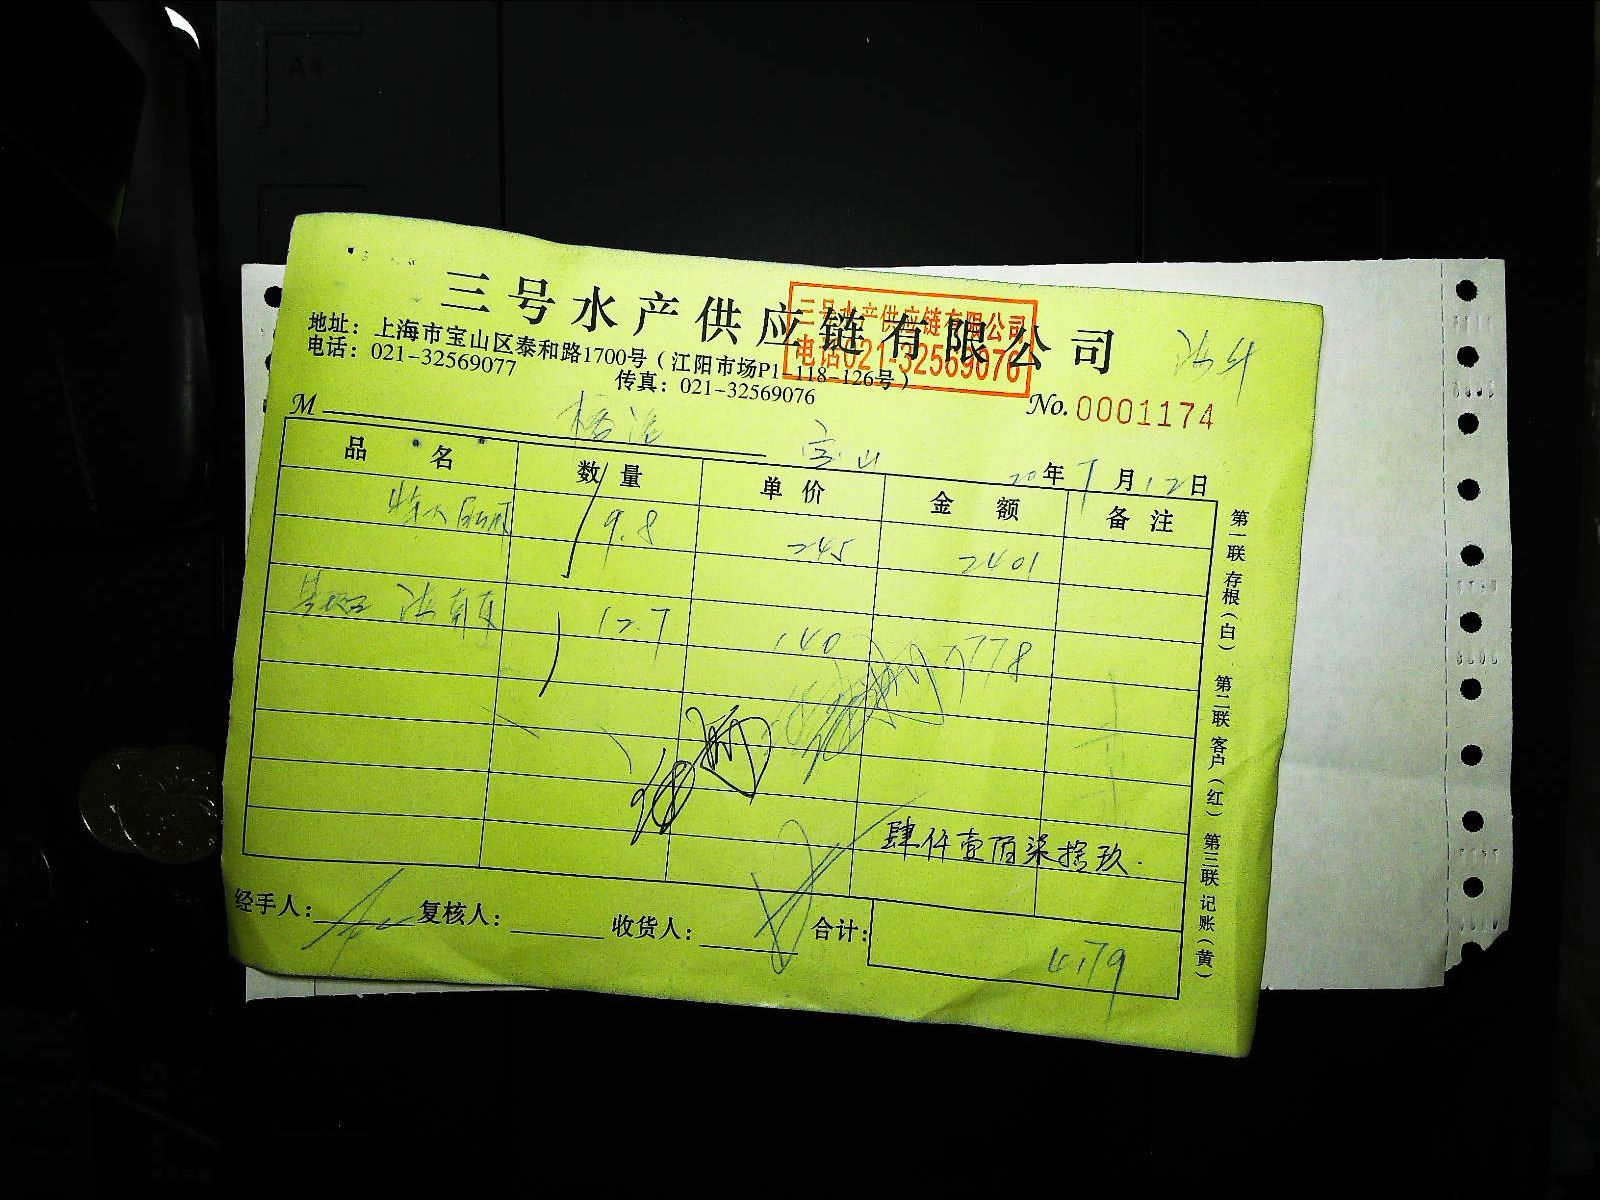 三号水产供应链有限公司
三号水产供应链有限公司
电话021-32569076
地址：上海市宝山区泰和路1700号（江阳市场P1-118-126号）
电话：021-32569077
传真：021-32569076
No.0001174
M
宝山
20年 月12日
品 名 数量 单价 金额 备注
9.8 245 2401
12.7 140 1778
肆仟壹佰柒拾玖.
经手人： 复核人： 收货人： 合计： 4179
第一联 存根（白） 第二联 客户（红） 第三联 记账（黄）